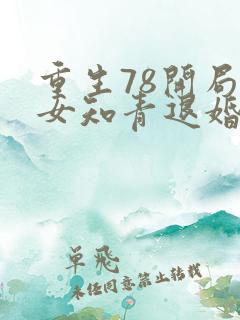 重生78开局
女知青退婚
单飞
未经同意禁止转载